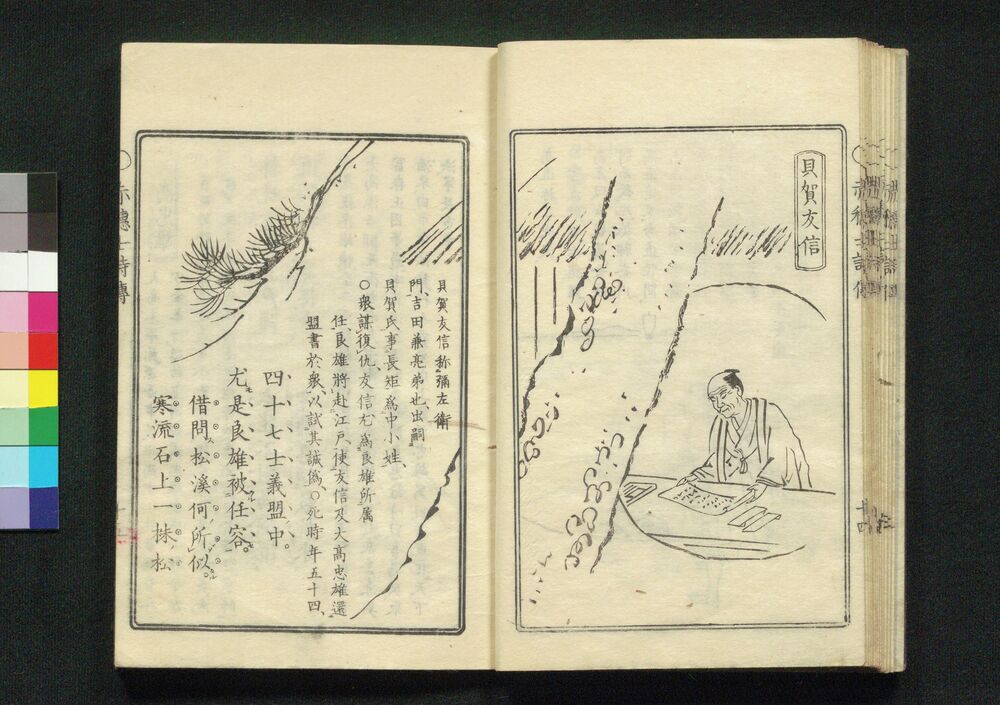 貝賀友信
貝賀友信称彌左衛
門吉田兼亮弟也出嗣
貝賀氏事長矩爲中小姓
〇衆謀復仇友信尤爲良雄所属
任良雄將赴江戸使友信及大高忠雄還
盟書於衆以試其誠僞〇死時年五十四
四十七士義盟中
尤是良雄被任容
借問松溪何所似
寒流石上一株松